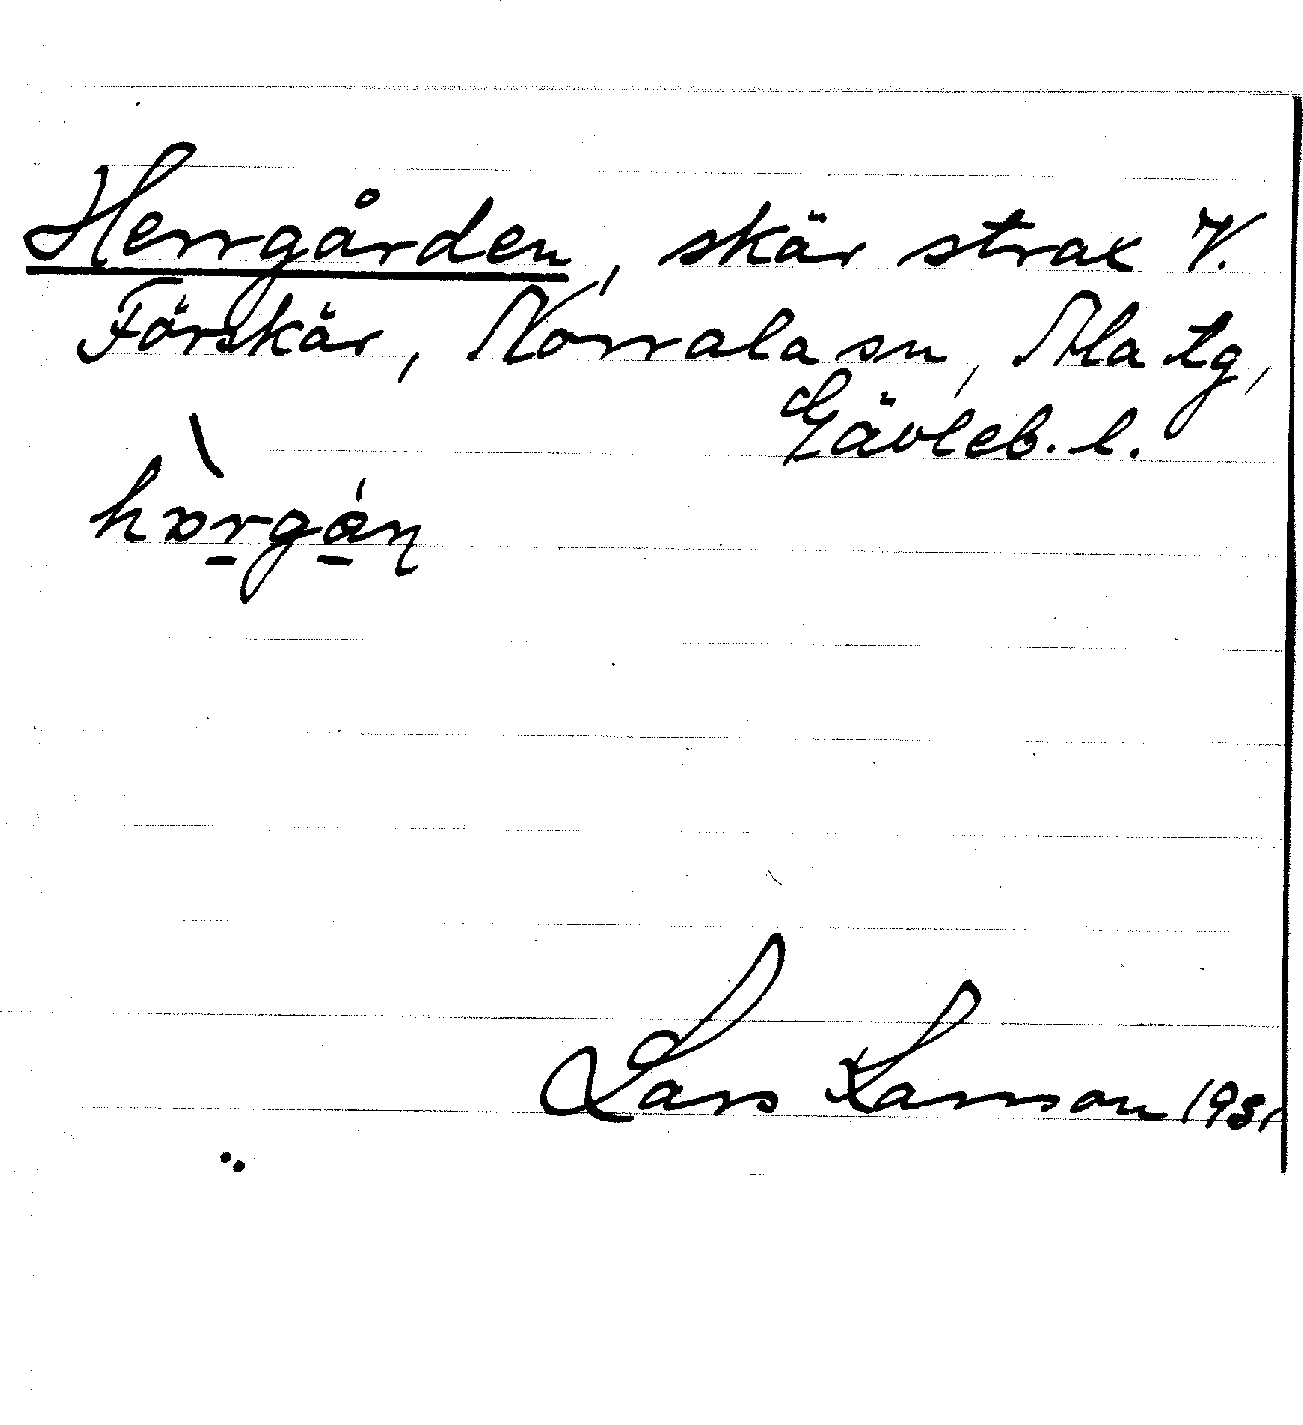 Herrgården, skär strax V.
Förskär, Norrala sn, Ala tg,
Gävleb. l.
Lars Larsson 1931